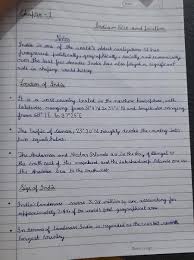 Chapter - 1
India - Size and Location
Notes
India is one of the world's oldest civilizations. It has
progressed politically, geographically, socially and economically
over the last few decades. India has also played a significant
role in shaping world history.
Location of India
It is a vast country located in the northern hemisphere, with
latitudes ranging from 8°4'N to 37°6'N and longitudes ranging
from 68°7'E to 97°25'E
The tropic of Cancer, 23°30'N roughly divides the country into
two equal halves.
The Andaman and Nicobar Islands are in the Bay of Bengal to
the south east of the mainland and the Lakshadweep Islands are in
the Arabian Sea to the southwest.
Size of India
India's landmass covers 3.28 million sq km, accounting for
approximately 2.4% of the world total geographical area
In terms of landmass India is regarded as the world's seventh
largest country.